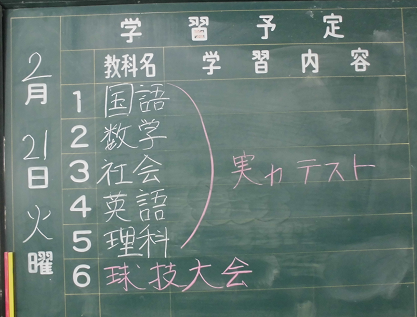 学習予定
教科名 学習内容
2月21日火曜
1 国語
2 数学
3 社会
4 英語
5 理科
実力テスト
6 球技大会